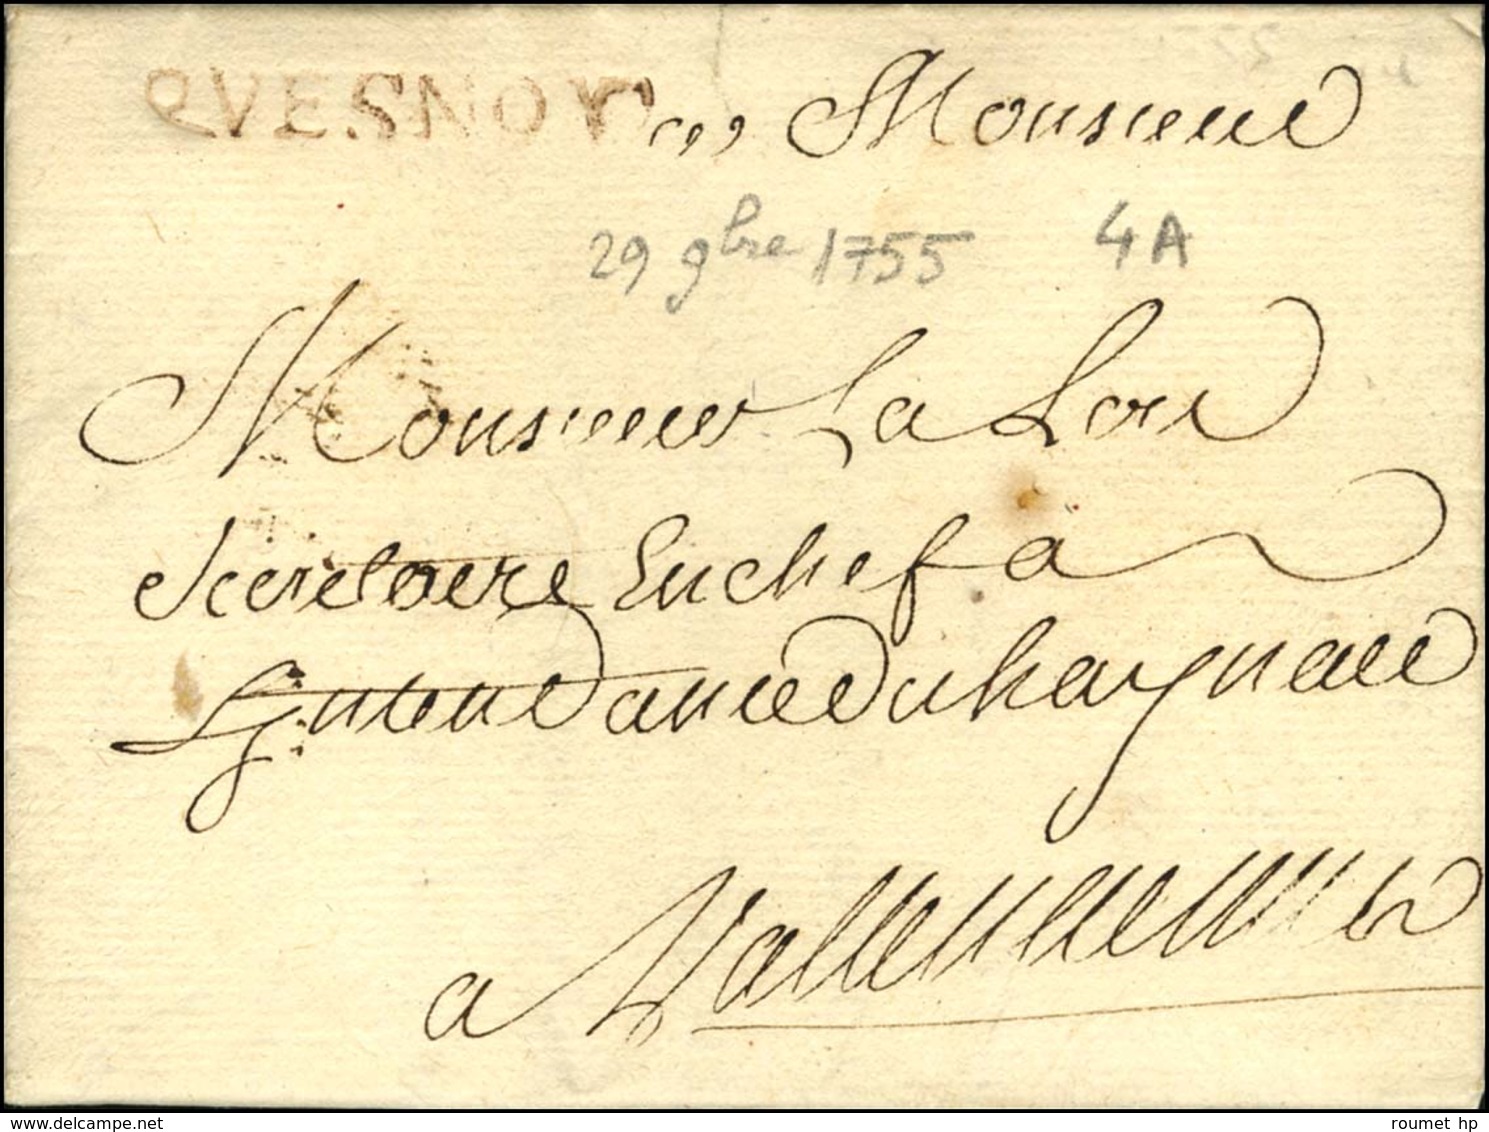 QVESNOY Monsieur
29 9bre 1755 4A
Monsieur La Loi
Secretaire En chef a
Intendance du haynau
a Vallenciennes
delcampe.net
roumet hp